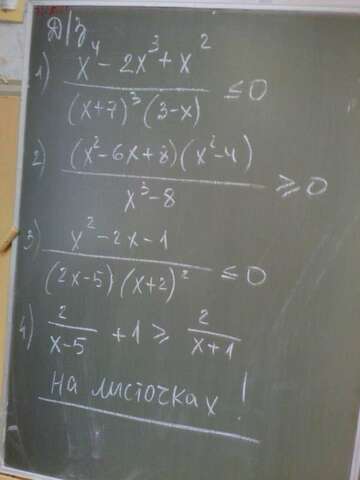 Д/З
1) (x⁴ - 2x³ + x²) / ((x+7)³(3-x)) ≤ 0
2) ((x²-6x+8)(x²-4)) / (x³-8) ≥ 0
3) (x²-2x-1) / ((2x-5)(x+2)²) ≤ 0
4) 2/(x-5) + 1 ≥ 2/(x+1)
на листочках!